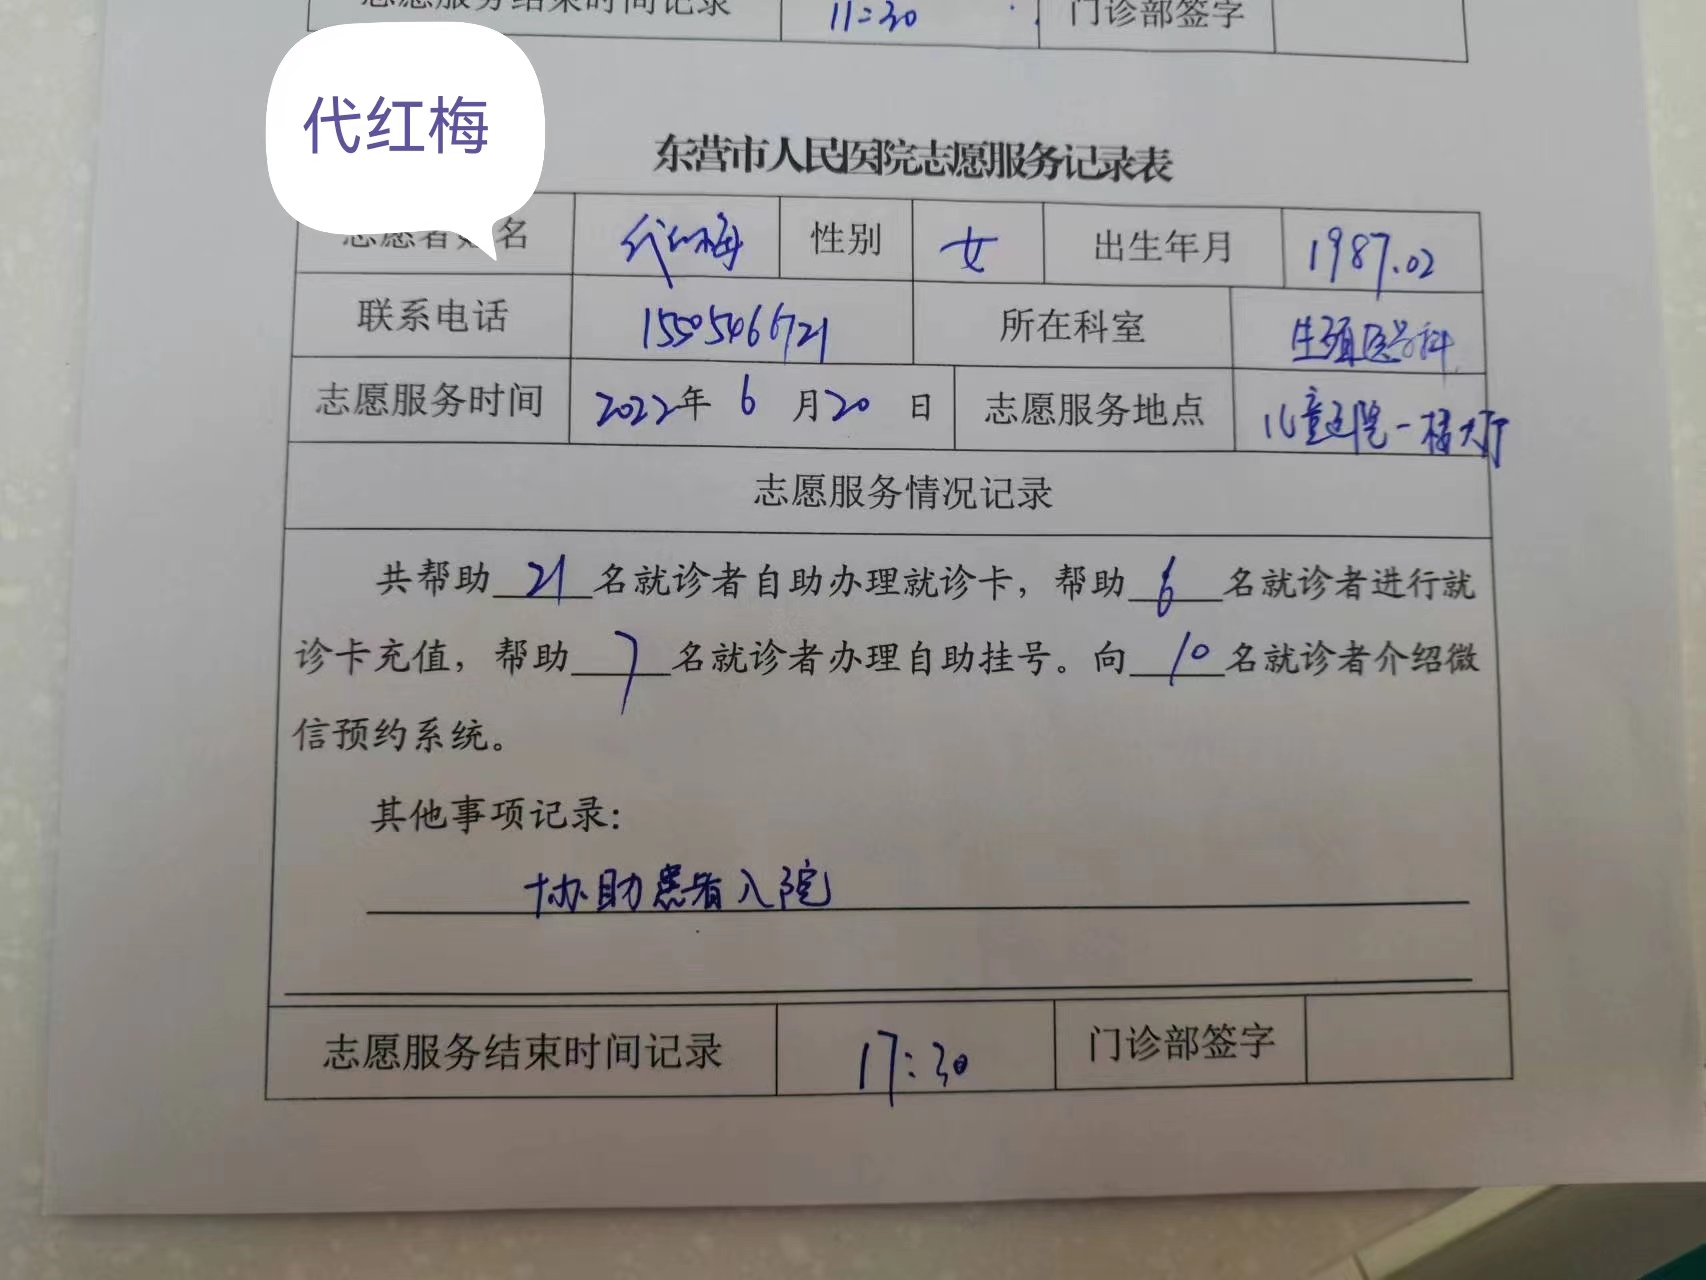 志愿服务结束时间记录 11:30 门诊部签字
代红梅
东营市人民医院志愿服务记录表
志愿者姓名 代红梅 性别 女 出生年月 1987.02
联系电话 15505466721 所在科室 生殖医学科
志愿服务时间 2022年 6 月20 日 志愿服务地点 儿童医院一楼大厅
志愿服务情况记录
共帮助 21 名就诊者自助办理就诊卡，帮助 6 名就诊者进行就
诊卡充值，帮助 7 名就诊者办理自助挂号。向 10 名就诊者介绍微
信预约系统。
其他事项记录：
协助患者入院
志愿服务结束时间记录 17:30 门诊部签字